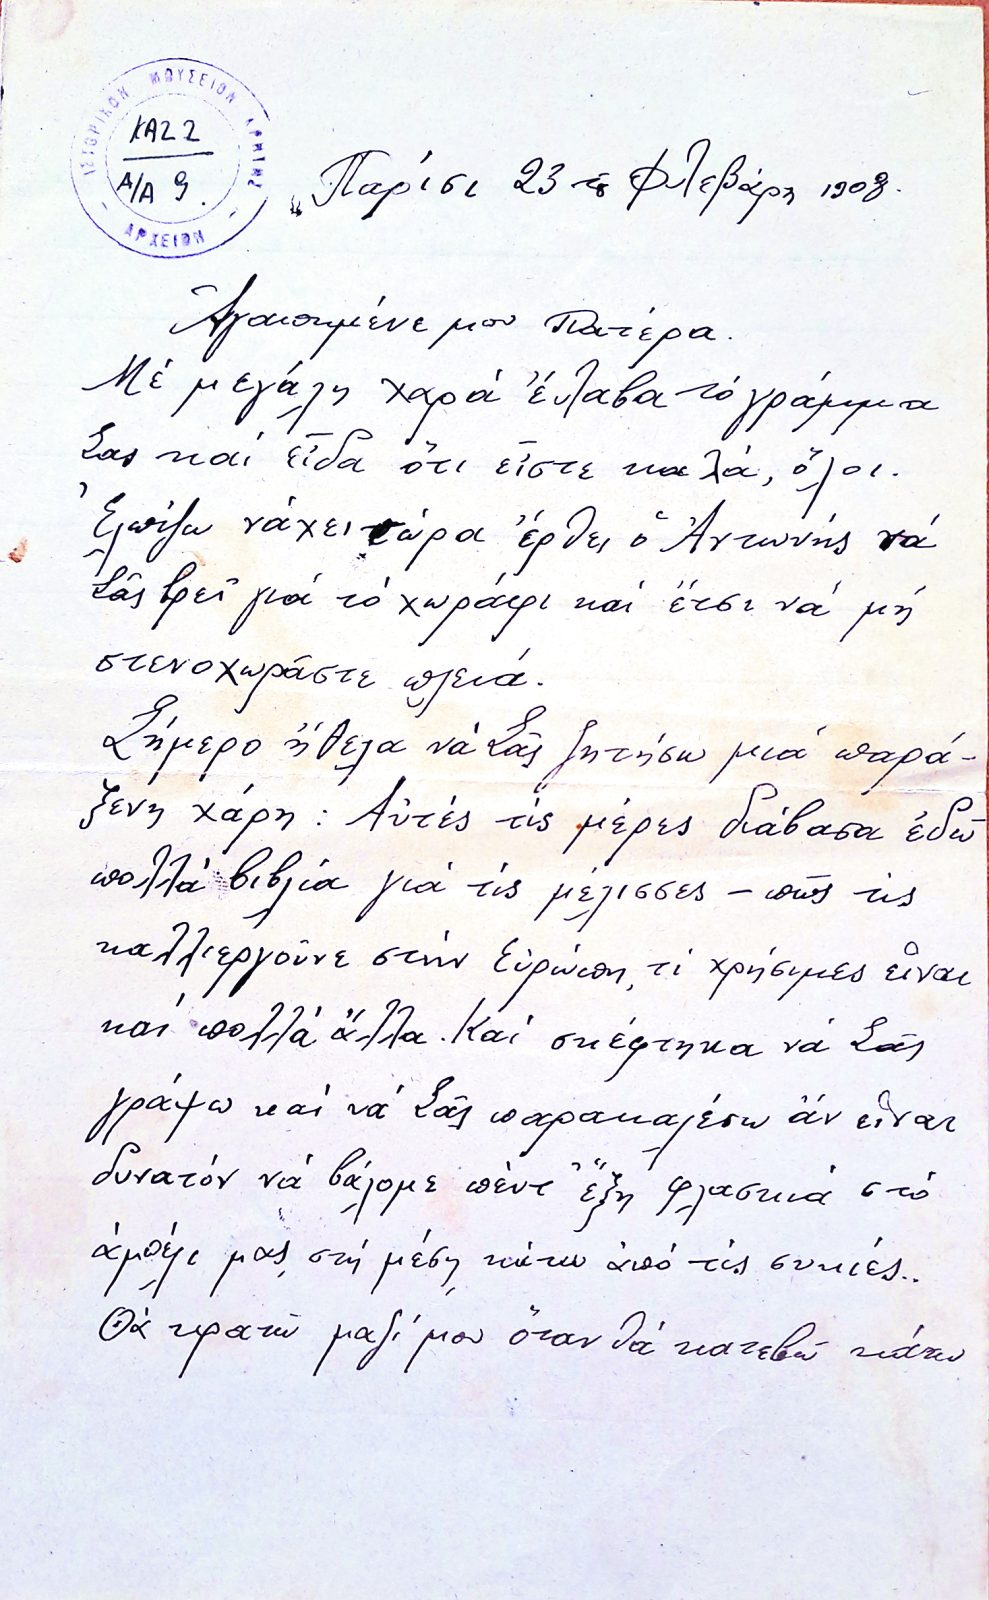 ΙΣΤΟΡΙΚΟΝ ΜΟΥΣΕΙΟΝ ΚΡΗΤΗΣ
ΚΑΖ 2
Α/Α 9.
ΑΡΧΕΙΟΝ
Παρίσι 23 τοῦ Φλεβάρη 1908.
Ἀγαπημένε μου Πατέρα.
Μέ μεγάλη χαρά ἔλαβα τό γράμμα
Σας καί εἶδα ὅτι εἶστε καλά, ὅλοι.
Ἐλπίζω νάχει τώρα ἔρθει ὁ Ἀντωνής νά
Σᾶς βρεῖ γιά τό χωράφι καί ἔτσι νά μή
στενοχωρᾶστε πλειά.
Σήμερο ἤθελα νά Σᾶς ζητήσω μιά παρά-
ξενη χάρη: Αὐτές τίς μέρες διάβασα ἐδῶ
πολλά βιβλία γιά τίς μέλισσες – πῶς τίς
καλλιεργοῦνε στήν Εὐρώπη, τί χρήσιμες εἶναι
καί πολλά ἄλλα. Καί σκέφτηκα νά Σᾶς
γράψω καί νά Σᾶς παρακαλέσω ἄν εἶναι
δυνατόν νά βάλομε πέντ' ἕξη φλασκιά στό
ἀμπέλι μας, στή μέση, κάτω ἀπό τίς συκιές..
Θά κρατῶ μαζί μου ὅταν θά κατεβῶ κάτω